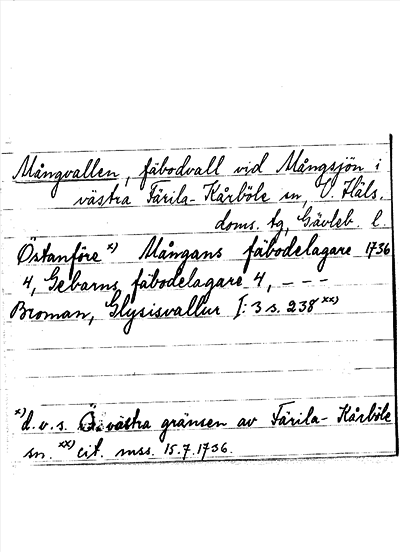 Mångvallen, fäbodvall vid Mångsjön i
västra Färila-Kårböle sn, V. Häls.
doms. tg, Gävleb. l.
Östanföre x) Mångans fäbodelagare 1736
4, Gebarns fäbodelagare 4, - - -
Broman, Glysisvallur I: 3 s. 238 xx)
x) d.v.s. västra gränsen av Färila-Kårböle
sn. xx) cit. mss. 15.7.1736.